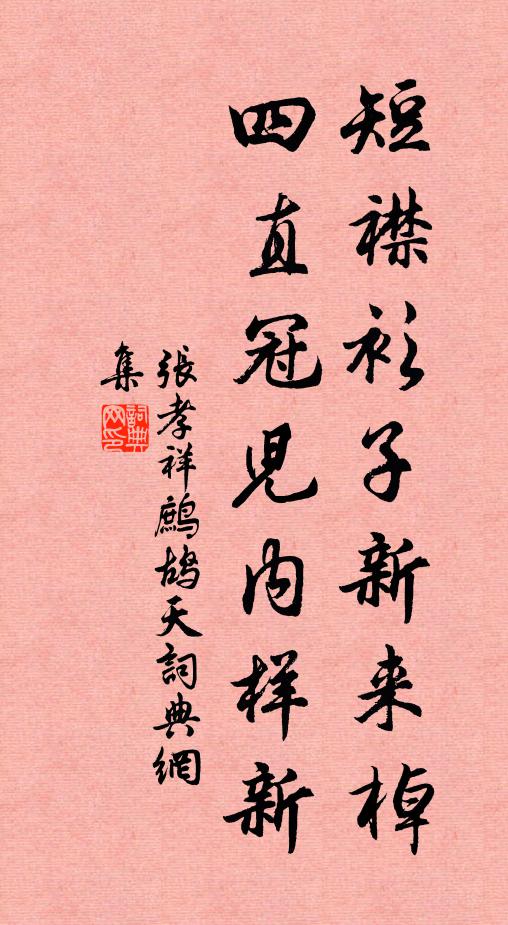 短襟衫子新来棹
四直冠儿内样新
張孝祥鷓鴣天詞典網
集
詞典网印